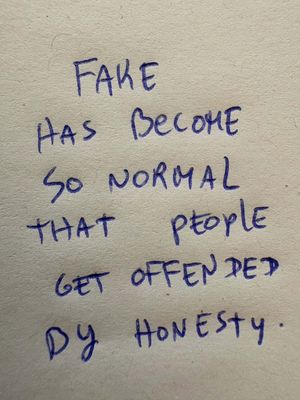 FAKE
HAS BECOME
SO NORMAL
THAT PEOPLE
GET OFFENDED
BY HONESTY.